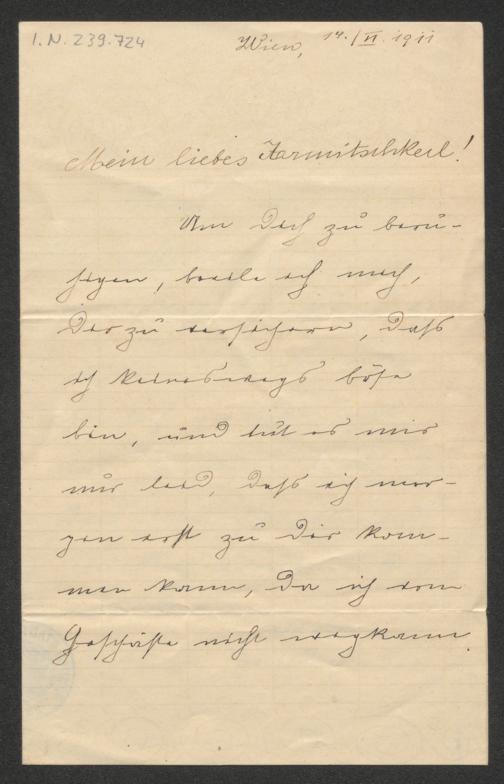 I.N. 239.724
Wien, 14./VI. 1911
Mein liebes
Um Dich zu beru-
higen, beeile ich mich,
Dir zu versichern, daß
ich keineswegs böse
bin, und tut es mir
nur leid, daß ich mor-
gen erst zu Dir kom-
men kann, da ich vom
Geschäfte nicht wegkann.